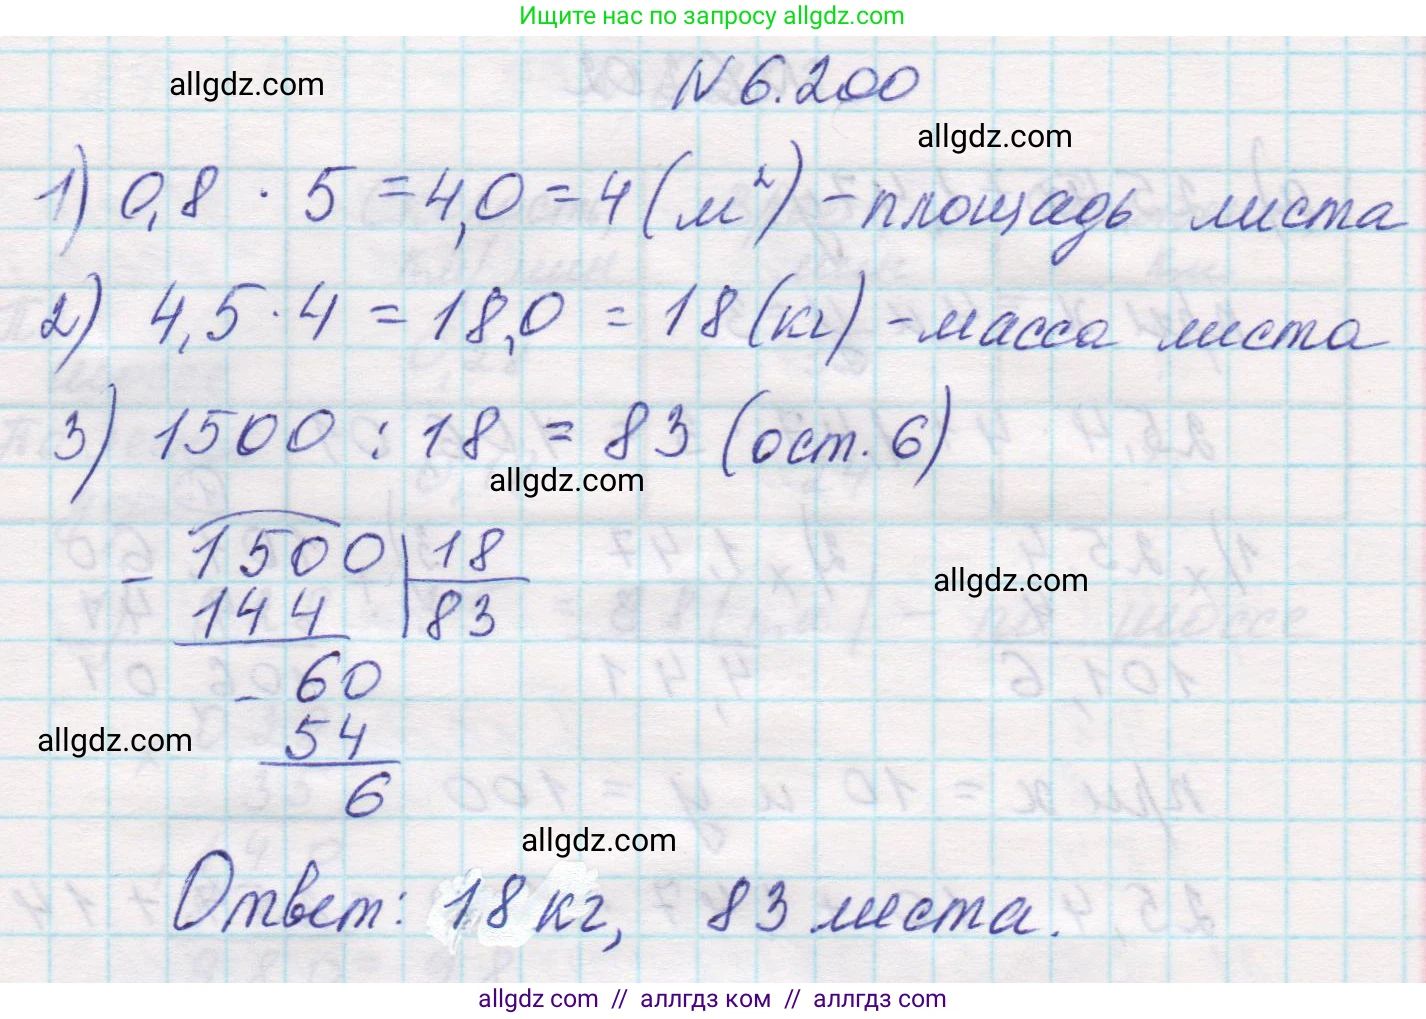 Ищите нас по запросу allgdz.com
allgdz.com
N 6.200
allgdz.com
1) 0,8 · 5 = 4,0 = 4 (м²) - площадь листа
2) 4,5 · 4 = 18,0 = 18 (кг) - масса листа
3) 1500 : 18 = 83 (ост. 6)
allgdz.com
- 1500 | 18
144 | 83
allgdz.com
- 60
54
allgdz.com
6
allgdz.com
Ответ: 18 кг, 83 листа.
allgdz.com // аллгдз ком // аллгдз.com